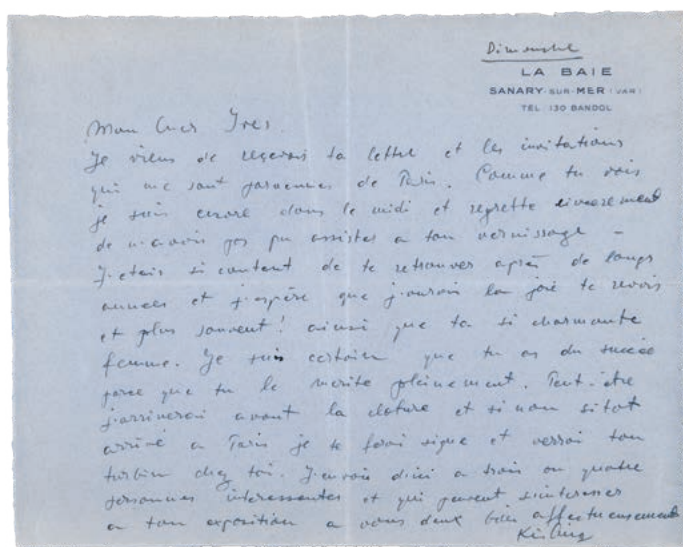 Dimanche
LA BAIE
SANARY-SUR-MER (VAR)
TÉL. 130 BANDOL
Mon cher Yves.
Je viens de reçevoir ta lettre et les invitations
qui me sont parvennes de Paris. Comme tu vois
je suis encore dans le midi et regrette sincerement
de n'avoir pas pu assister a ton vernissage –
J'etais si content de te retrouver après de longs
annees et j'espère que j'aurais la joie te revoir
et plus souvent! ainsi que ta si charmante
femme. Je suis certain que tu as du succée
parce que tu le merite pleinement. Peut-être
j'arriverai avant la cloture et si non sitot
arrivé a Paris je te ferai signe et verrai ton
turbin chez toi. J'envoie d'ici a trois ou quatre
personnes interessantes et qui peuvent s'interesser
a ton exposition a vous deux bien affectueusement
Kisling